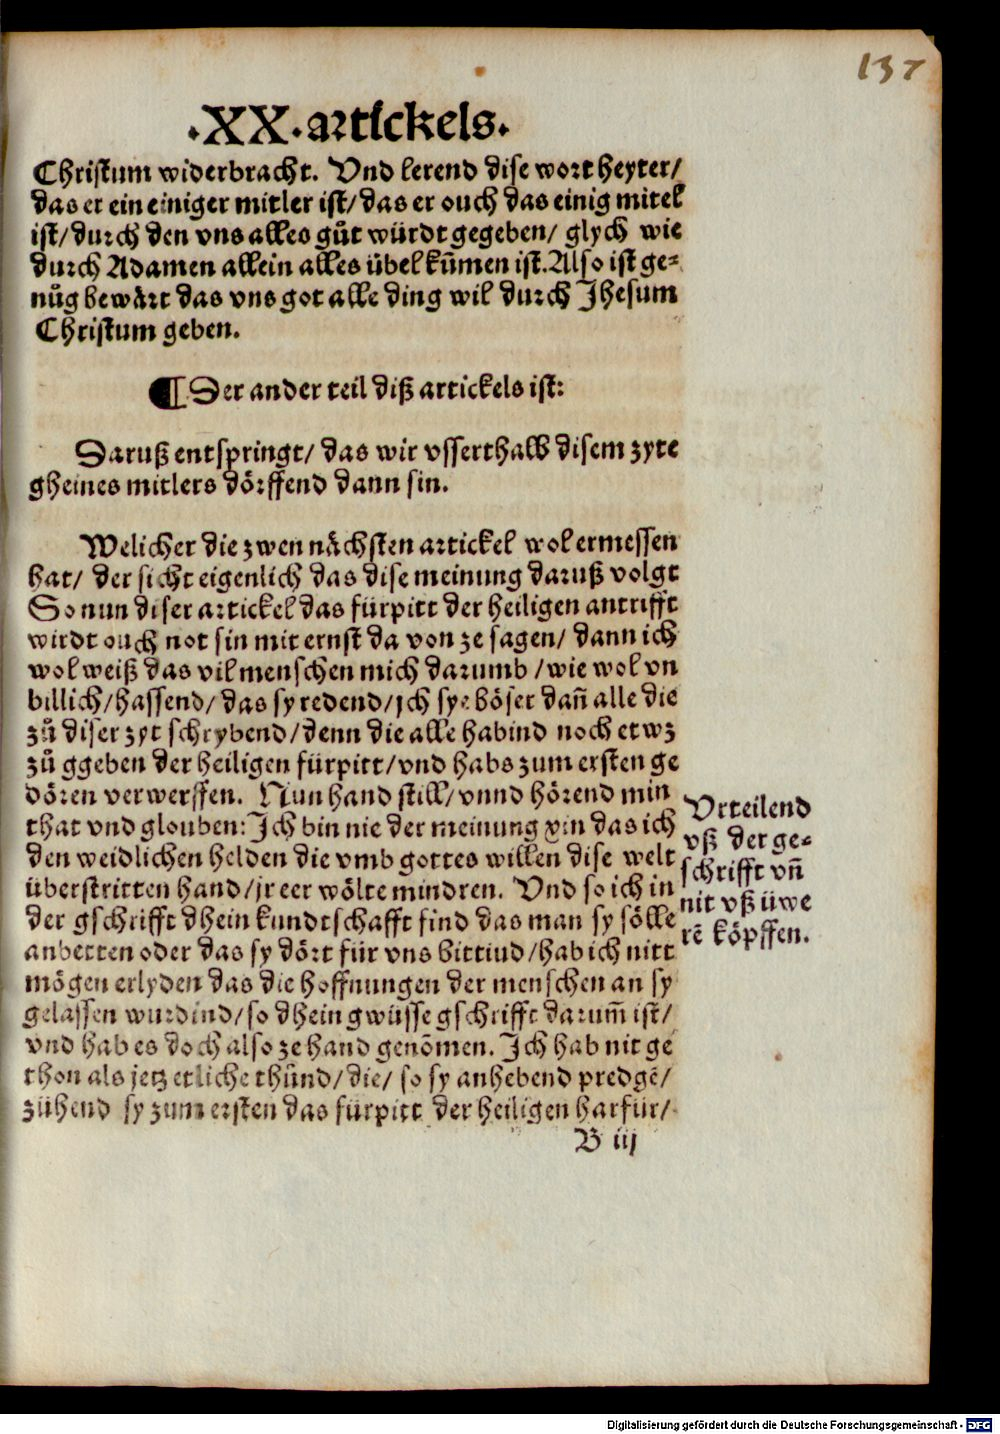 137
·XX·artickels.
Christum widerbracht. Vnd lerend dise wort heyter/
das er ein einiger mitler ist/das er ouch das einig mitel
ist/durch den vns alles gůt würdt gegeben/ glych wie
durch Adamen allein alles übel kum̃en ist.Also ist ge⸗
nůg bewärt das vns got alle ding wil durch Jhesum
Christum geben.
¶Der ander teil diß artickels ist:
Daruß entspringt/ das wir vsserthalb disem zyte
gheines mitlers dörffend dann sin.
Welicher die zwen nächsten artickel wol ermessen
hat/ der sicht eigenlich das dise meinung daruß volgt
So nun diser artickel das fürpitt der heiligen antrifft
wirdt ouch not sin mit ernst da von ze sagen/ dann ich
wol weiß das vil menschen mich darumb /wie wol vn
billich/hassend/das sy redend/jch sye böser dañ alle die
zů diser zyt schrybend/denn die alle habind noch etwz
zů ggeben der heiligen fürpitt/vnd habs zum ersten ge
dören verwerffen. Nun hand still/vnnd hörend min
that vnd glouben:Ich bin nie der meinung xin das ich
den weidlichen helden die vmb gottes willen dise welt
überstritten hand/jr eer wölte mindren. Vnd so ich in
der gschrifft dhein kundtschafft find das man sy sölle
anbetten oder das sy dört für vns bittind/hab ich nitt
mögen erlyden das die hoffnungen der menschen an sy
gelassen wurdind/so dhein gwüsse gschrifft darum̃ ist/
vnd hab es doch also ze hand genõmen. Ich hab nit ge
thon als jetz etliche thůnd/die/ so sy anhebend predgẽ/
zühend sy zum ersten das fürpitt der heiligen harfür/
Vrteilend
vß der ge⸗
schrifft vñ
nit vß üwe
rẽ köpffen.
B iij
Digitalisierung gefördert durch die Deutsche Forschungsgemeinschaft - DFG